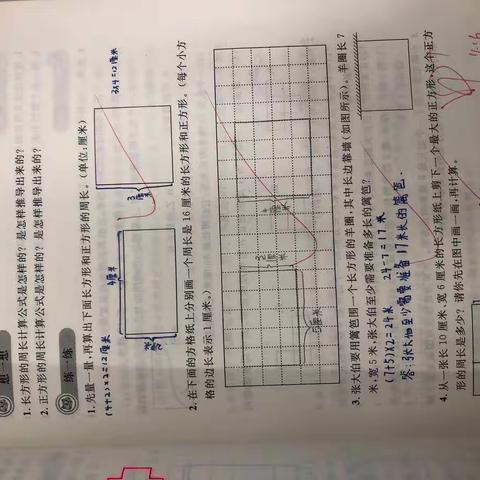 想一想
1. 长方形的周长计算公式是怎样的？是怎样推导出来的？
2. 正方形的周长计算公式是怎样的？是怎样推导出来的？
练一练
1. 先量一量，再算出下面长方形和正方形的周长。（单位：厘米）
(4+2)×2=12厘米
3×4=12厘米
4厘米
3厘米
2. 在下面的方格纸上分别画一个周长是 16 厘米的长方形和正方形。（每个小方
格的边长表示 1 厘米。）
3. 张大伯要用篱笆围一个长方形的羊圈，其中长边靠墙（如图所示）。羊圈长 7
米，宽 5 米，张大伯至少需要准备多长的篱笆？
(7+5)×2=24米
24-7=17米
答：张大伯至少需要准备17米长的篱笆.
4. 从一张长 10 厘米、宽 6 厘米的长方形纸上剪下一个最大的正方形，这个正方
形的周长是多少？请你先在图中画一画，再计算。